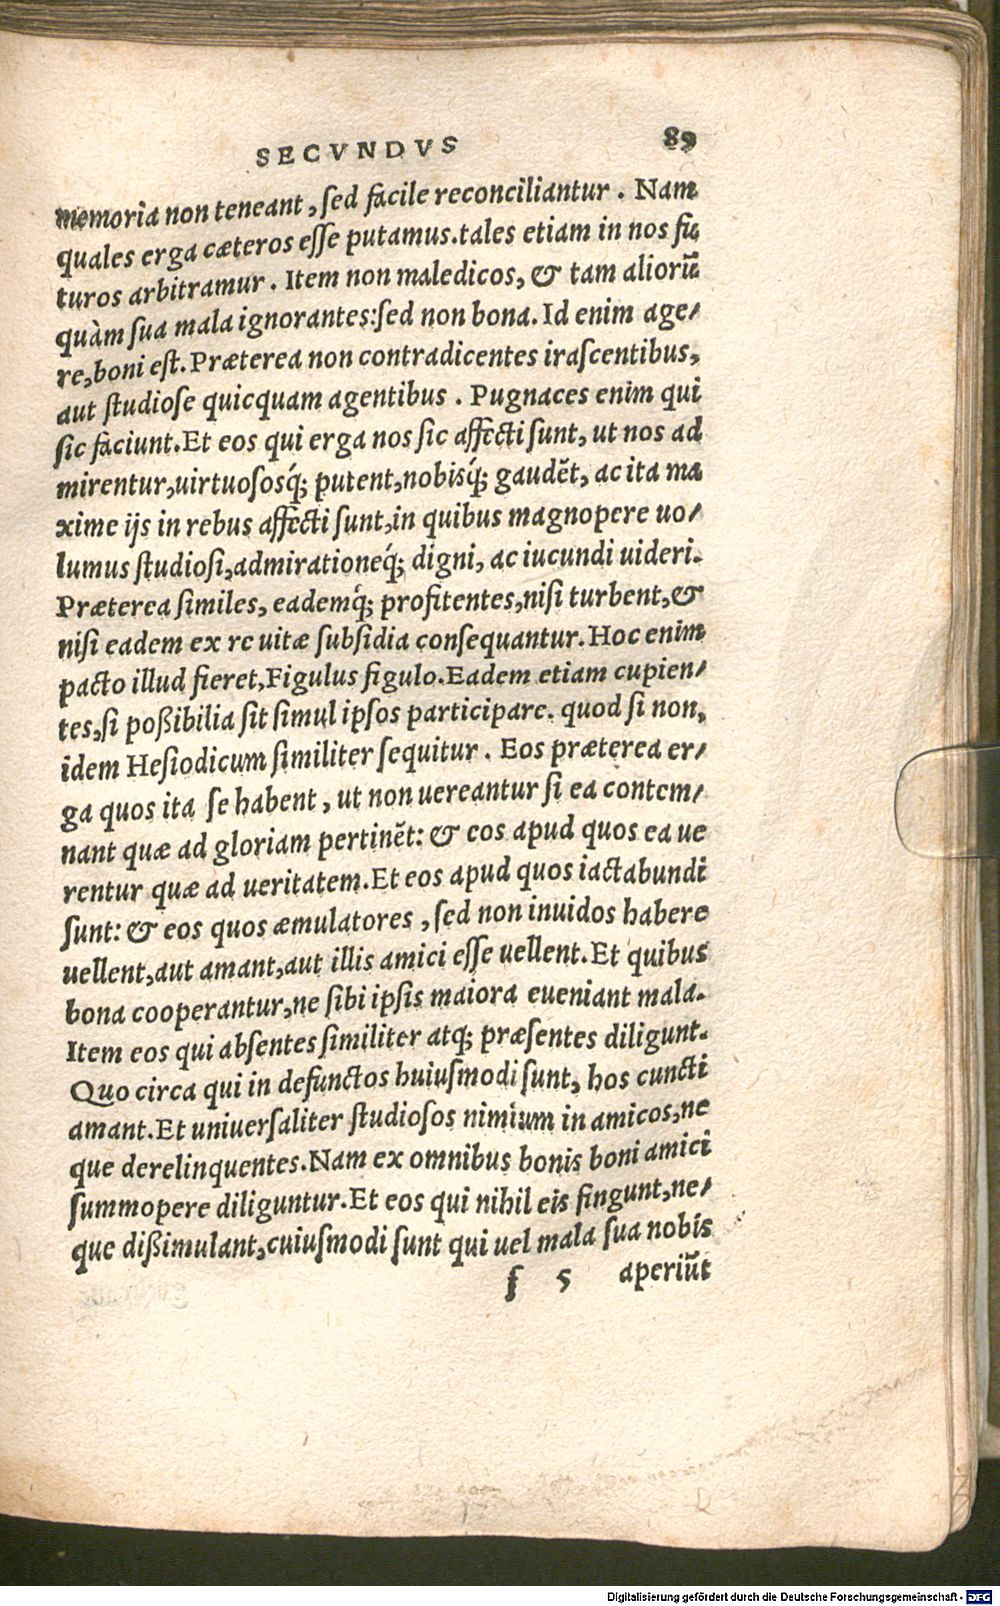 SECVNDVS 89
memoria non teneant, ſed facile reconciliantur. Nam
quales erga cæteros eſſe putamus.tales etiam in nos fu
turos arbitramur. Item non maledicos, & tam aliorũ
quàm ſua mala ignorantes:ſed non bona. Id enim age⸗
re,boni eſt. Præterea non contradicentes iraſcentibus,
aut ſtudioſe quicquam agentibus. Pugnaces enim qui
ſic faciunt. Et eos qui erga nos ſic affecti ſunt, ut nos ad
mirentur,uirtuoſosq́; putent,nobisq́; gaudẽt, ac ita ma
xime ijs in rebus affecti ſunt,in quibus magnopere uo⸗
lumus ſtudioſi,admirationeq́; digni, ac iucundi uideri.
Præterea ſimiles, eademq́; profitentes,niſi turbent,&
niſi eadem ex re uitæ ſubſidia conſequantur. Hoc enim
pacto illud fieret,Figulus figulo. Eadem etiam cupien⸗
tes,ſi poßibilia ſit ſimul ipſos participare. quod ſi non,
idem Heſiodicum ſimiliter ſequitur. Eos præterea er⸗
ga quos ita ſe habent, ut non uereantur ſi ea contem⸗
nant quæ ad gloriam pertinẽt: & eos apud quos ea ue
rentur quæ ad ueritatem. Et eos apud quos iactabundi
ſunt: & eos quos æmulatores, ſed non inuidos habere
uellent,aut amant,aut illis amici eſſe uellent. Et quibus
bona cooperantur,ne ſibi ipſis maiora eueniant mala.
Item eos qui abſentes ſimiliter atq; præſentes diligunt.
Quo circa qui in defunctos huiuſmodi ſunt, hos cuncti
amant. Et uniuerſaliter ſtudioſos nimium in amicos,ne
que derelinquentes. Nam ex omnibus bonis boni amici
ſummopere diliguntur. Et eos qui nihil eis fingunt,ne⸗
que dißimulant,cuiuſmodi ſunt qui uel mala ſua nobis
f 5 aperiũt
Digitalisierung gefördert durch die Deutsche Forschungsgemeinschaft - DFG